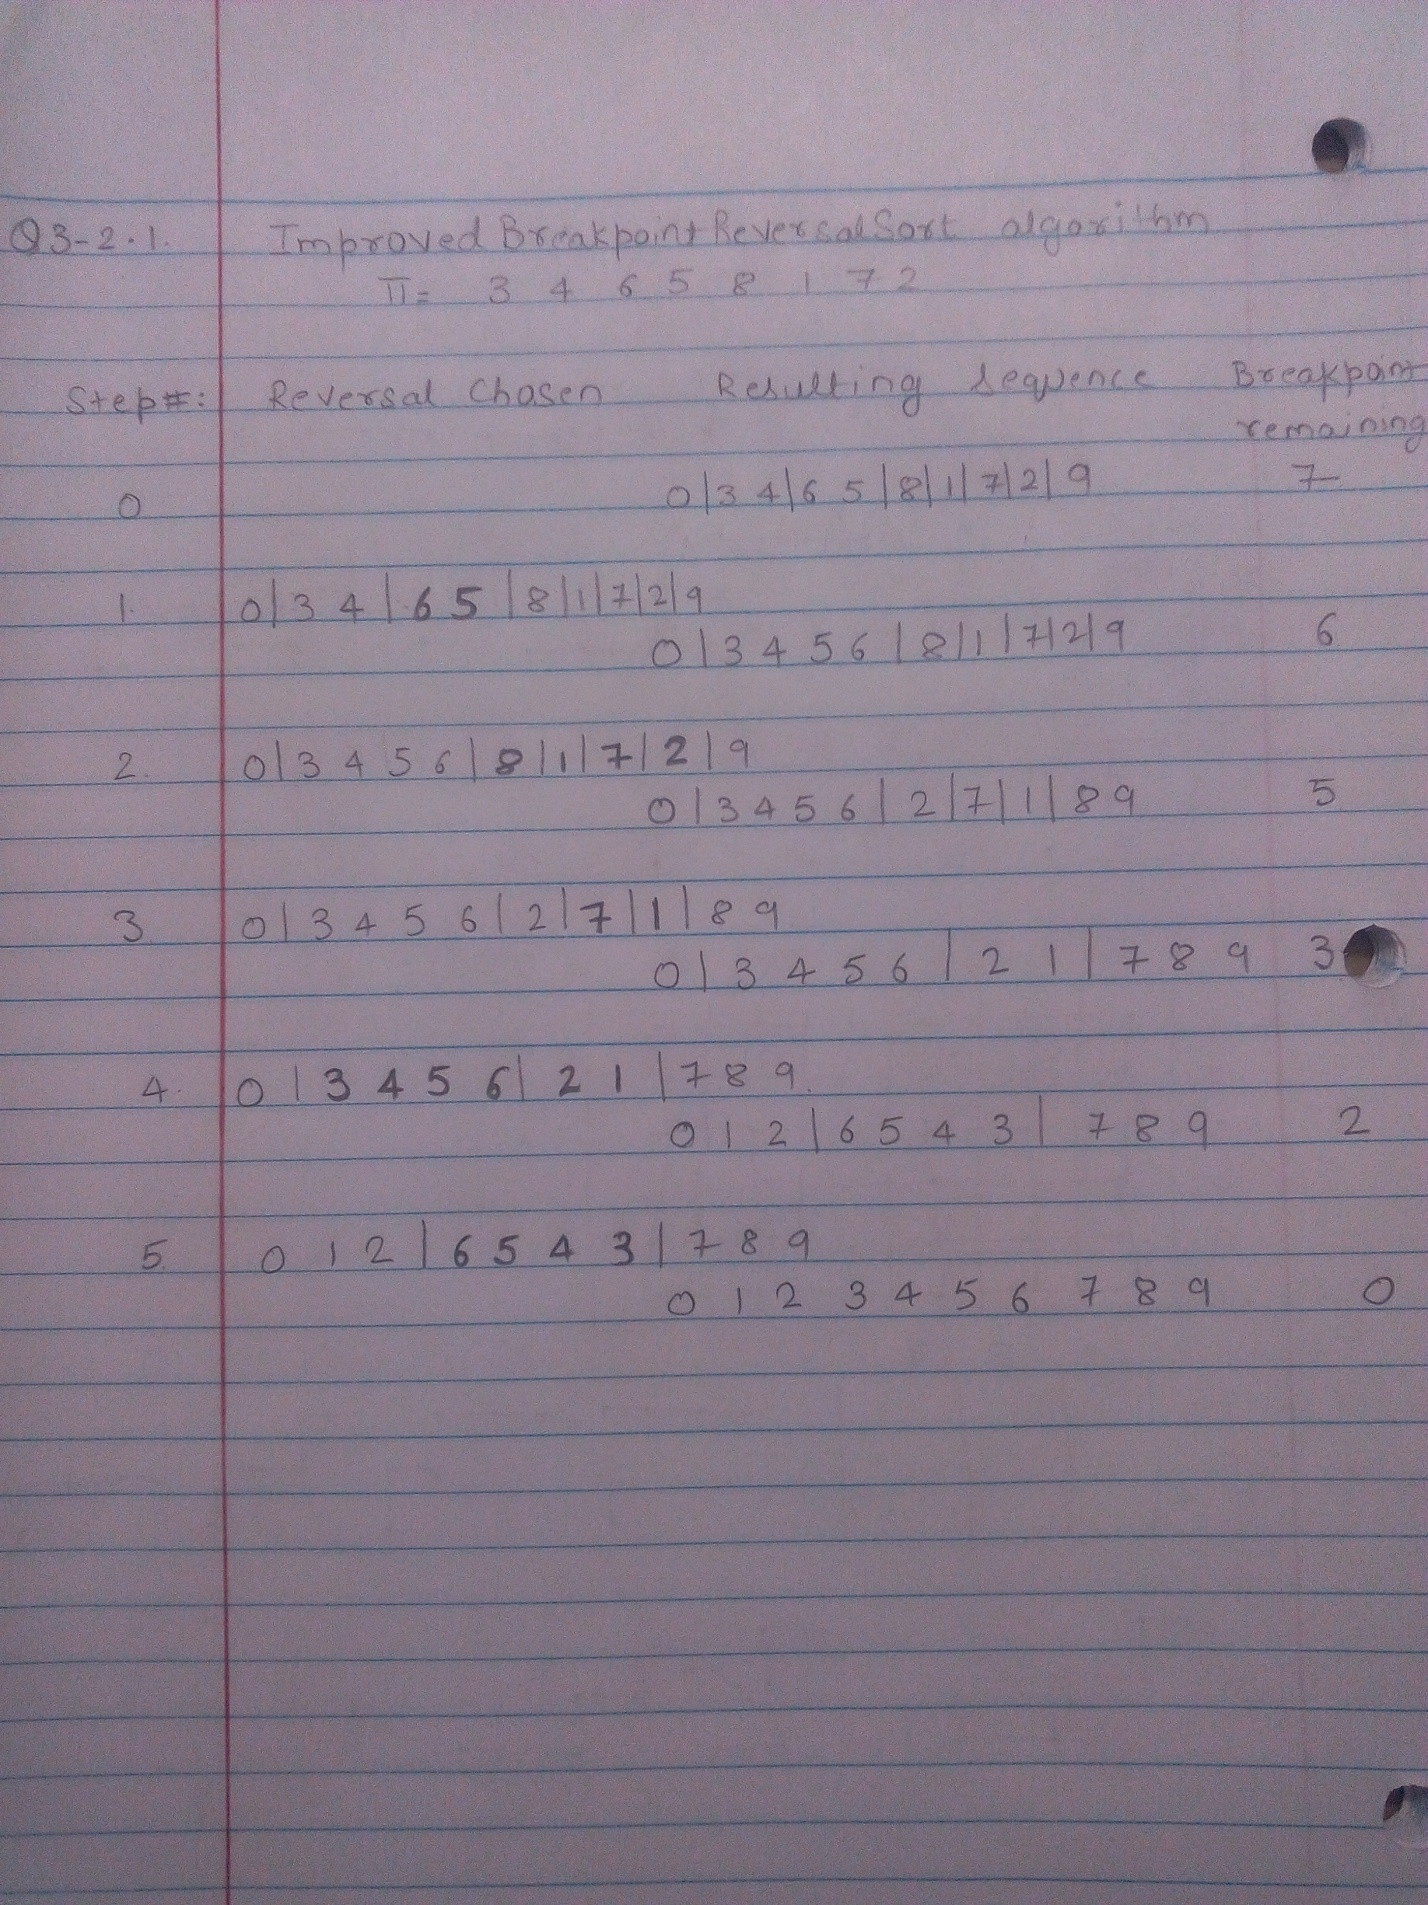 Q3-2.1. Improved BreakpointReversalSort algorithm
π= 3 4 6 5 8 1 7 2
Step#: Reversal Chosen Resulting sequence Breakpoint
remaining
0 0|3 4|6 5|8|1|7|2|9 7
1. 0|3 4|6 5|8|1|7|2|9
0|3 4 5 6|8|1|7|2|9 6
2. 0|3 4 5 6|8|1|7|2|9
0|3 4 5 6|2|7|1|8 9 5
3 0|3 4 5 6|2|7|1|8 9
0|3 4 5 6|2 1|7 8 9 3
4. 0|3 4 5 6|2 1|7 8 9.
0 1 2|6 5 4 3|7 8 9 2
5. 0 1 2|6 5 4 3|7 8 9
0 1 2 3 4 5 6 7 8 9 0